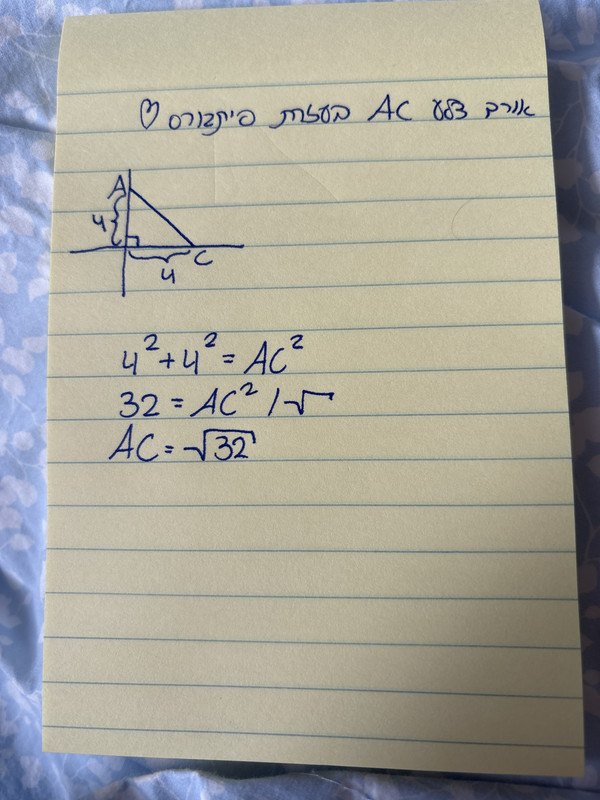 אורך צלע AC בעזרת פיתגורס ♡
A
4
C
4
4² + 4² = AC²
32 = AC² /√
AC = √32